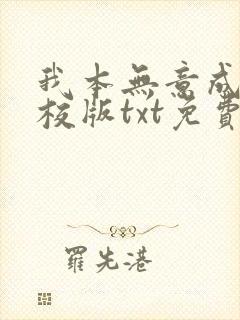 我本無意成
校版txt免費
羅先港